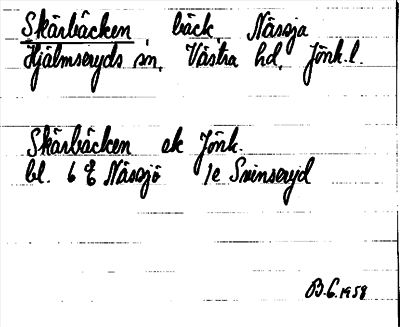 Skärbäcken, bäck, Nässja
Hjälmseryds sn, Västra hd, Jönk.l.
Skärbäcken ek Jönk.
bl. 6 E Nässjö 1e Svinseryd
B.G. 1958